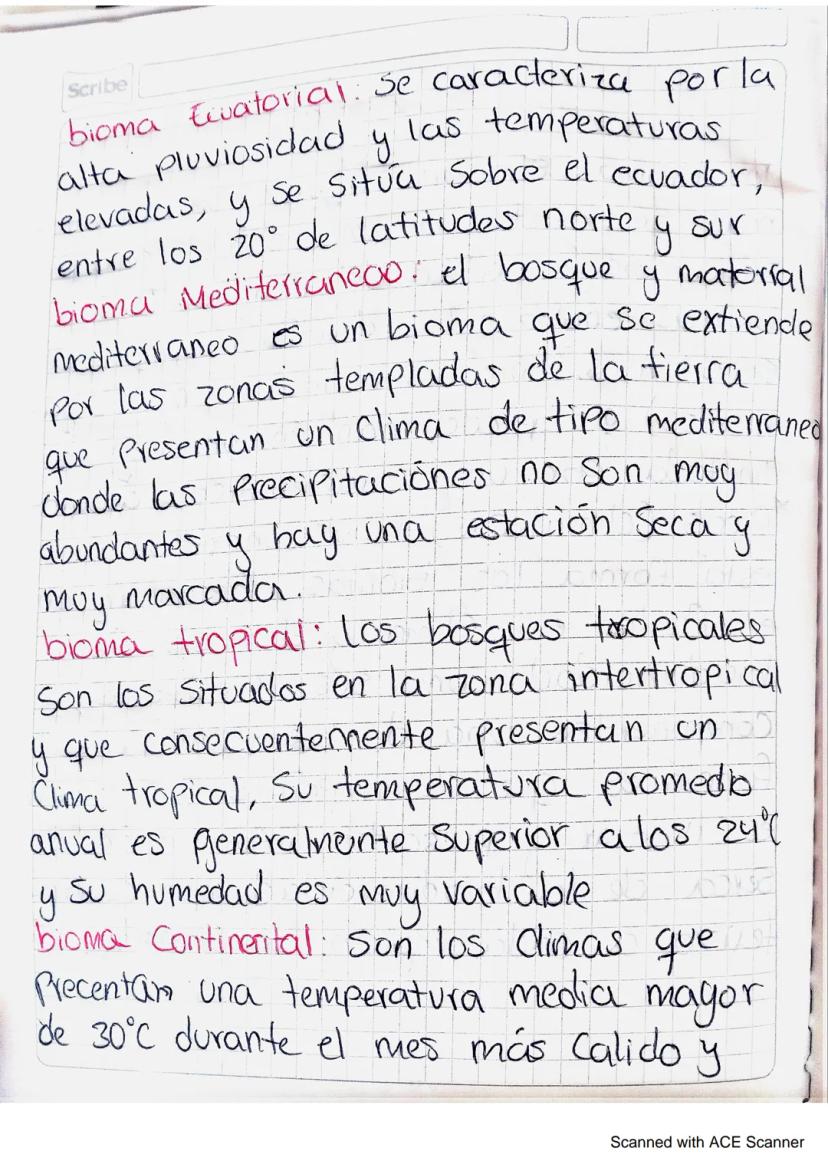 Scribe
bioma Ecuatorial: se caracteriza por la
alta pluviosidad y las temperaturas
elevadas, y se sitúa sobre el ecuador,
entre los 20° de latitudes norte y sur
bioma Mediterraneoo: el bosque y matorral
mediterraneo es un bioma que se extiende
por las zonas templadas de la tierra
que presentan un clima de tipo mediterraneo
donde las precipitaciónes no son muy
abundantes y hay una estación seca y
muy marcada.
bioma tropical: los bosques tropicales
son los situados en la zona intertropical
y que consecuentemente presentan un
clima tropical, su temperatura promedio
anual es generalmente superior a los 24°C
y su humedad es muy variable
bioma Continental: son los climas que
precentan una temperatura media mayor
de 30°C durante el mes más calido y
Scanned with ACE Scanner